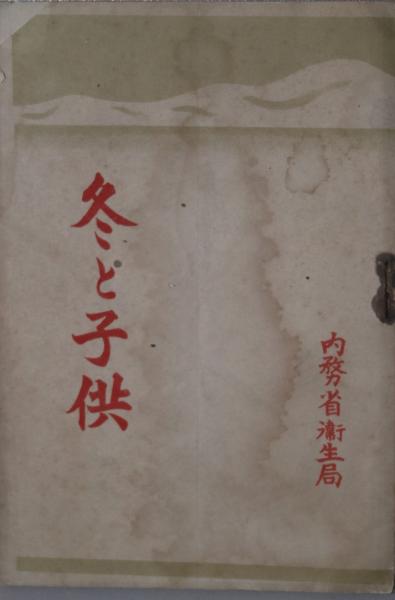 内務省衛生局
冬と子供